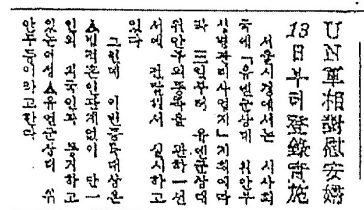 UN軍相對慰安婦
13日부터登錄實施
서울시경에서는 시사회
국에 『유엔군상대 위안부
성병관리사업계』 계획에따
라 一三일부터 유엔군상대
위안부의등록을 관하一선
서에 전담시켜 실시하고
있다
그런데 이번등록대상은
▲법적혼인관계없이 단一
인의 외국인과 동거하고
있는여성▲유엔군상대 위
안부등이라고한다